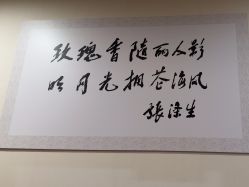 玫瑰香隨丽人影
明月光拥苍海风
張涤生